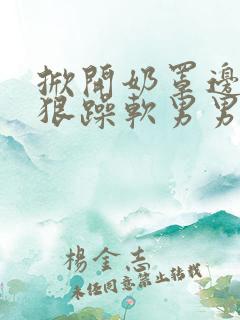 掀開奶罩邊
狠躁軟男男
楊金志
未经同意禁止转载